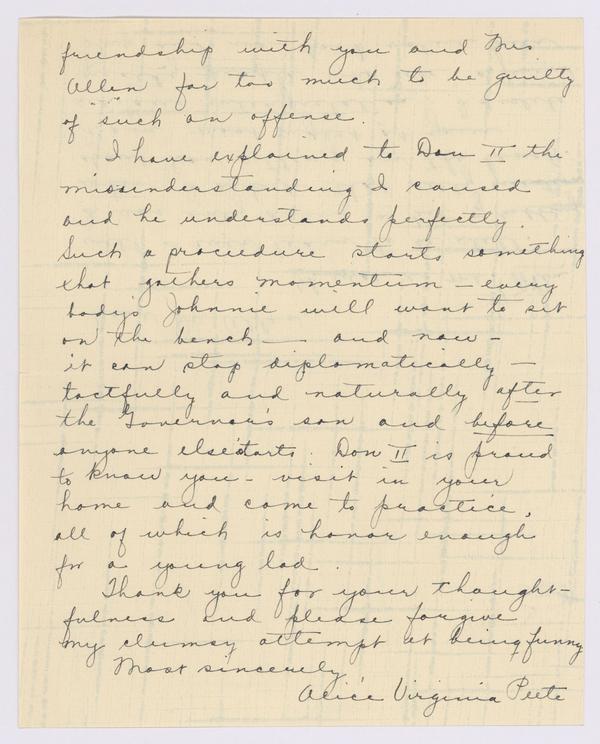 friendship with you and Mrs
Allen far too much to be guilty
of "such an offense.
I have explained to Don II the
misunderstanding I caused
and he understands perfectly.
Such a procedure starts something
that gathers momentum — every
bodys Johnnie will want to sit
on the bench — and now —
it can stop diplomatically —
tactfully and naturally after
the Governor's son and before
anyone else starts. Don II is proud
to know you - visit in your
home and come to practice,
all of which is honor enough
for a young lad.
Thank you for your thought-
fulness and please forgive
my clumsy attempt at being funny
Most sincerely
Alice Virginia Peete